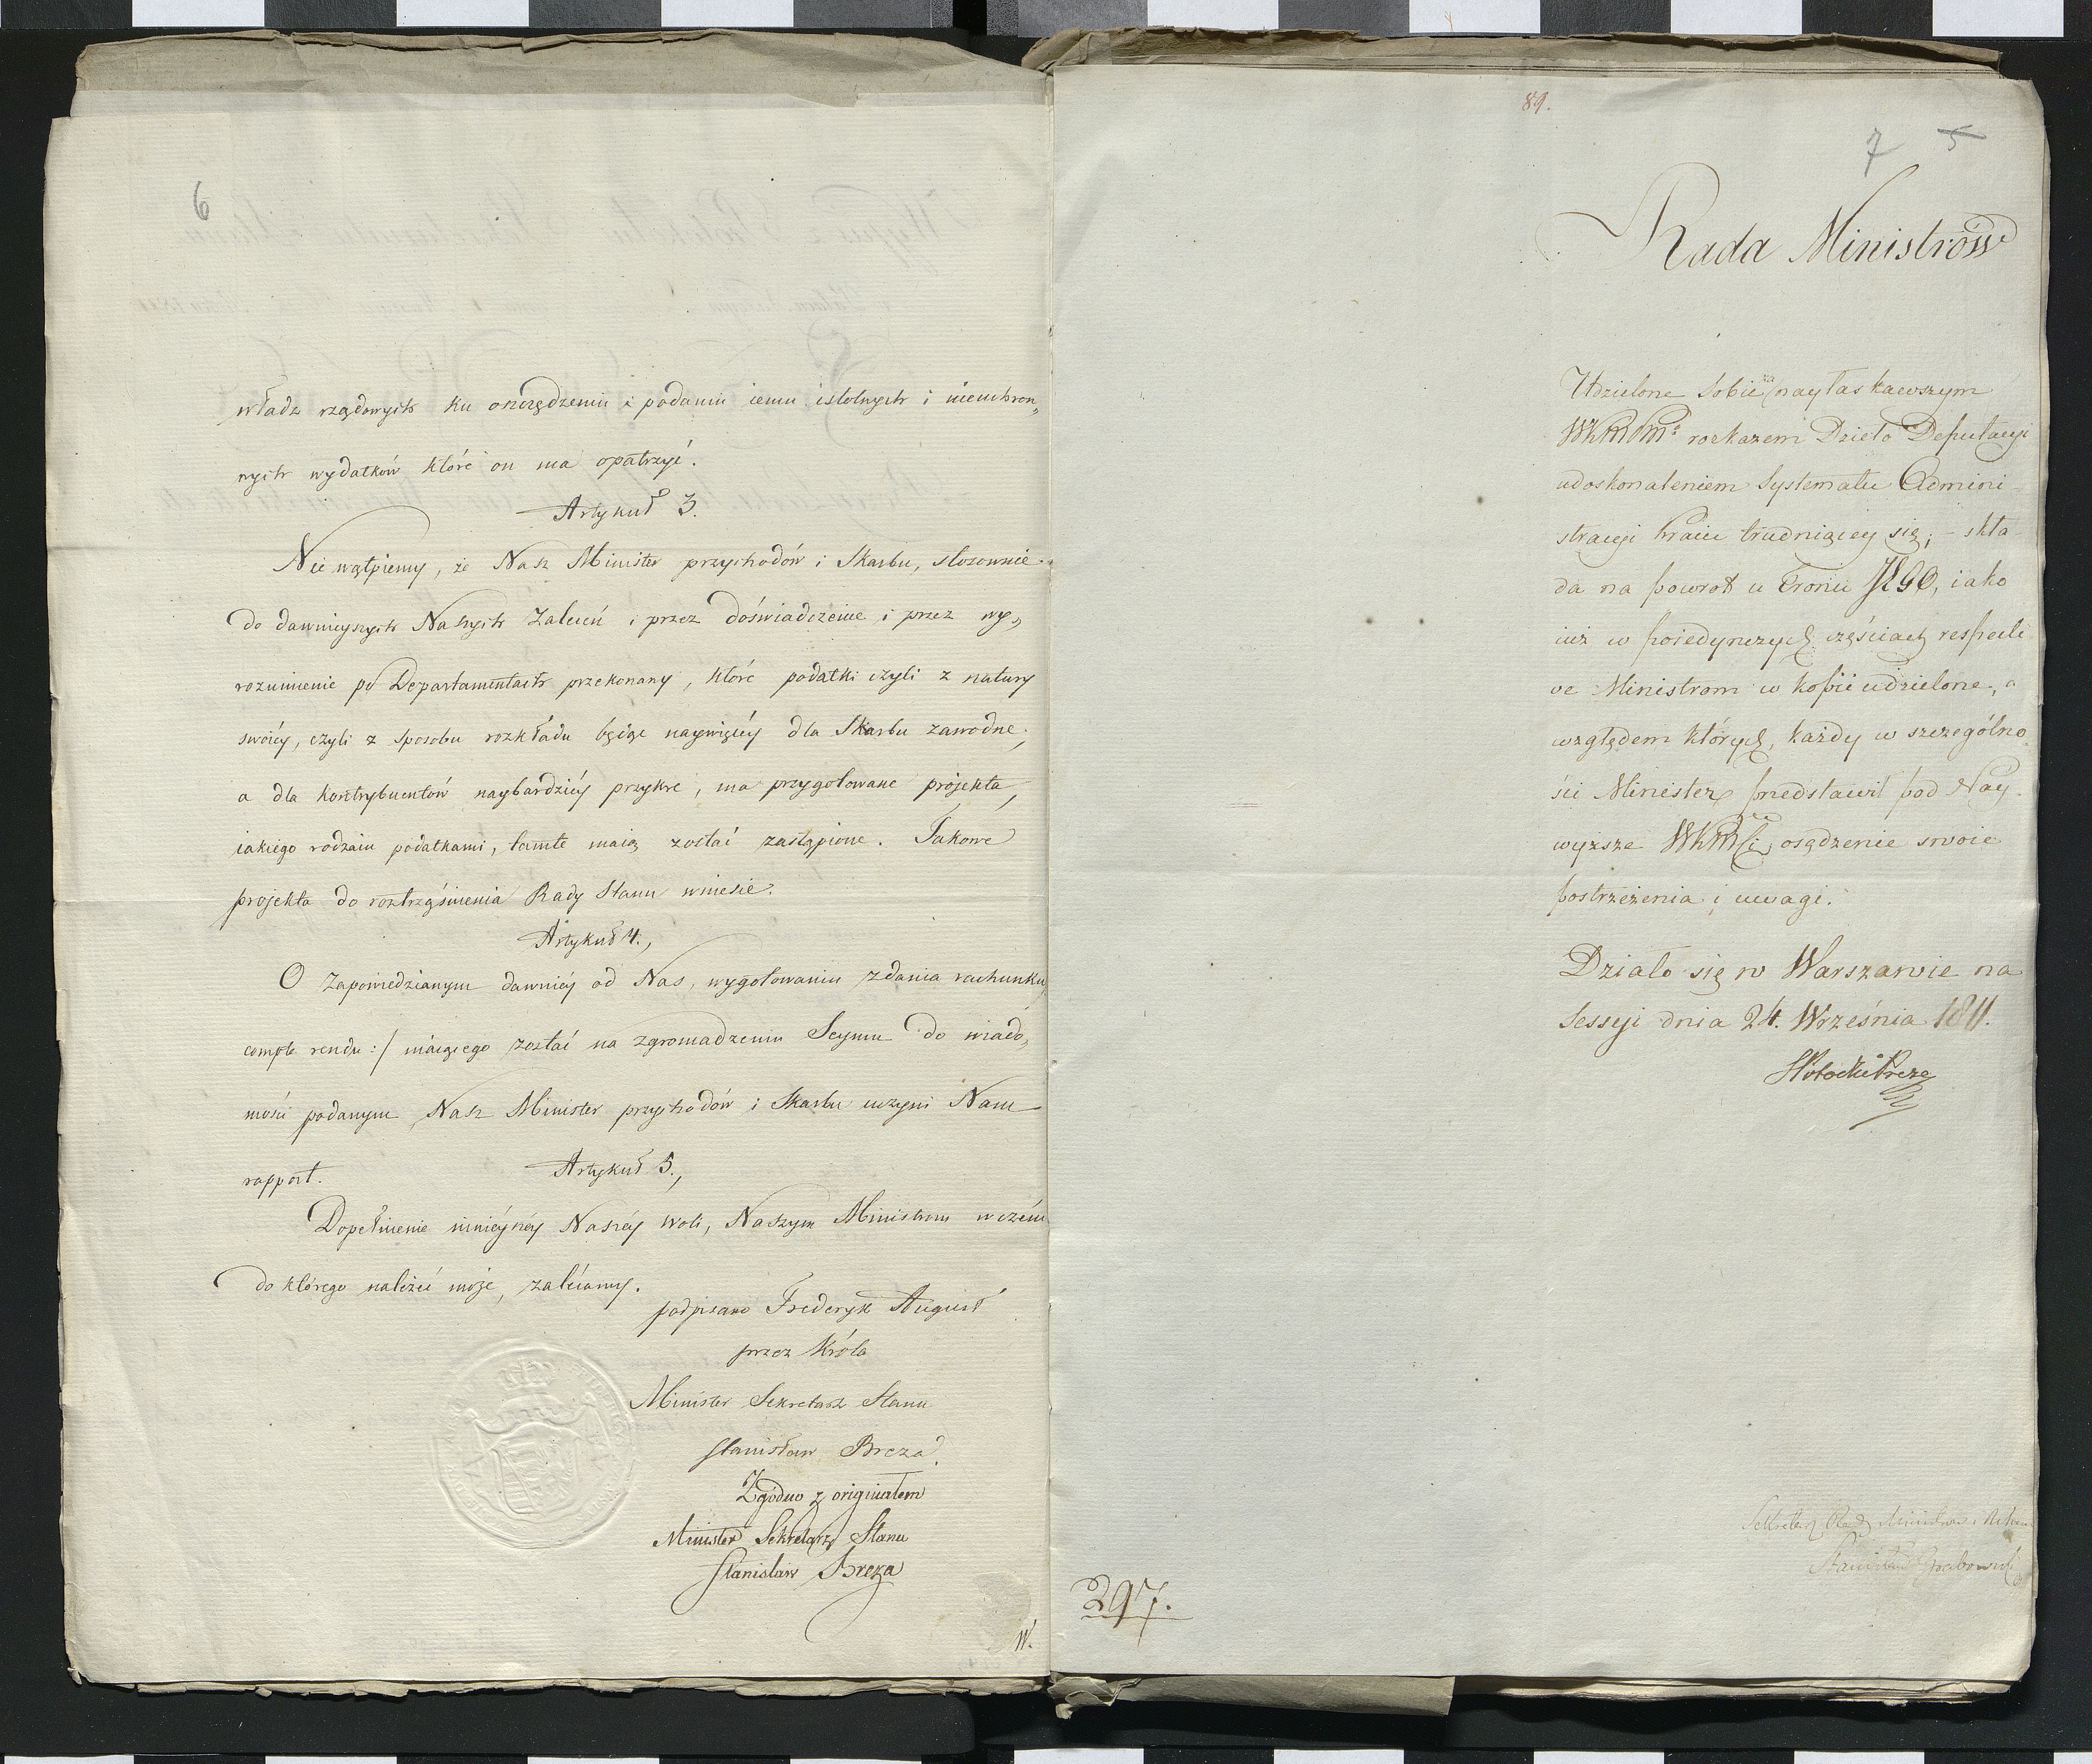 6
władz rządowych ku oszczędzeniu i podaniu iemu istotnych i nieuchron„
nych wydatków które on ma opatrzyć.
Artykuł 3.
Nie wątpiemy, że Nasz Minister przychodów i Skarbu, stosownie
do dawnieyszych Naszych Zaleceń i przez doświadczenie i przez wy„
rozumienie po Departamentach przekonany, które podatki czyli z natury
swoiey, czyli z sposobu rozkładu będąc naywięcey dla Skarbu zawodne,
a dla kontrybuentów naybardziey przykre, ma przygotowane projekta,
iakiego rodzaiu podatkami, tamte maią zostać zastąpione. Takowe
projekta do roztrząśnienia Rady Stanu wniesie.
Artykuł 4.,
O Zapowiedzianym dawniey od Nas, wygotowaniu zdania rachunku
compte rendu :/ maiącego zostać na zgromadzeniu Seymu do wiado„
mości podanym, Nasz Minister przychodów i Skarbu uczyni Nam
rapport.
Artykuł 5.,
Dopełnienie ninieyszey Naszey woli, Naszym Ministrom w czém
do którego należeć może, zalecamy.
podpisano Frederyk August
przez Króla
Minister Sekretarz Stanu
Stanisław Breza.
Zgodno z originałem
Minister Sekretarz Stanu
Stanisław Breza
W.
89.
7 5
Rada Ministrów
Udzielone Sobie za nayłaskawszym
rozkazem Dzieło Deputacyi
udoskonaleniem Systematu Admini-
stracyi kraiu trudniącey się; - skła-
da na powrot u Tronu JEGO, iako
iuż w poiedynczych częściach respecti-
ve Ministrom w kopii udzielone, a
względem których, każdy w szczególno-
ści Minister przedstawił pod Nay-
wyższe WKMci osądzenie swoie
postrzeżenia i uwagi.
Działo się w Warszawie na
Sessyi dnia 24. Września 1811.
SPotocki Preze
Sekretarz Rady Ministrów
Stanisław Grabowski
297.